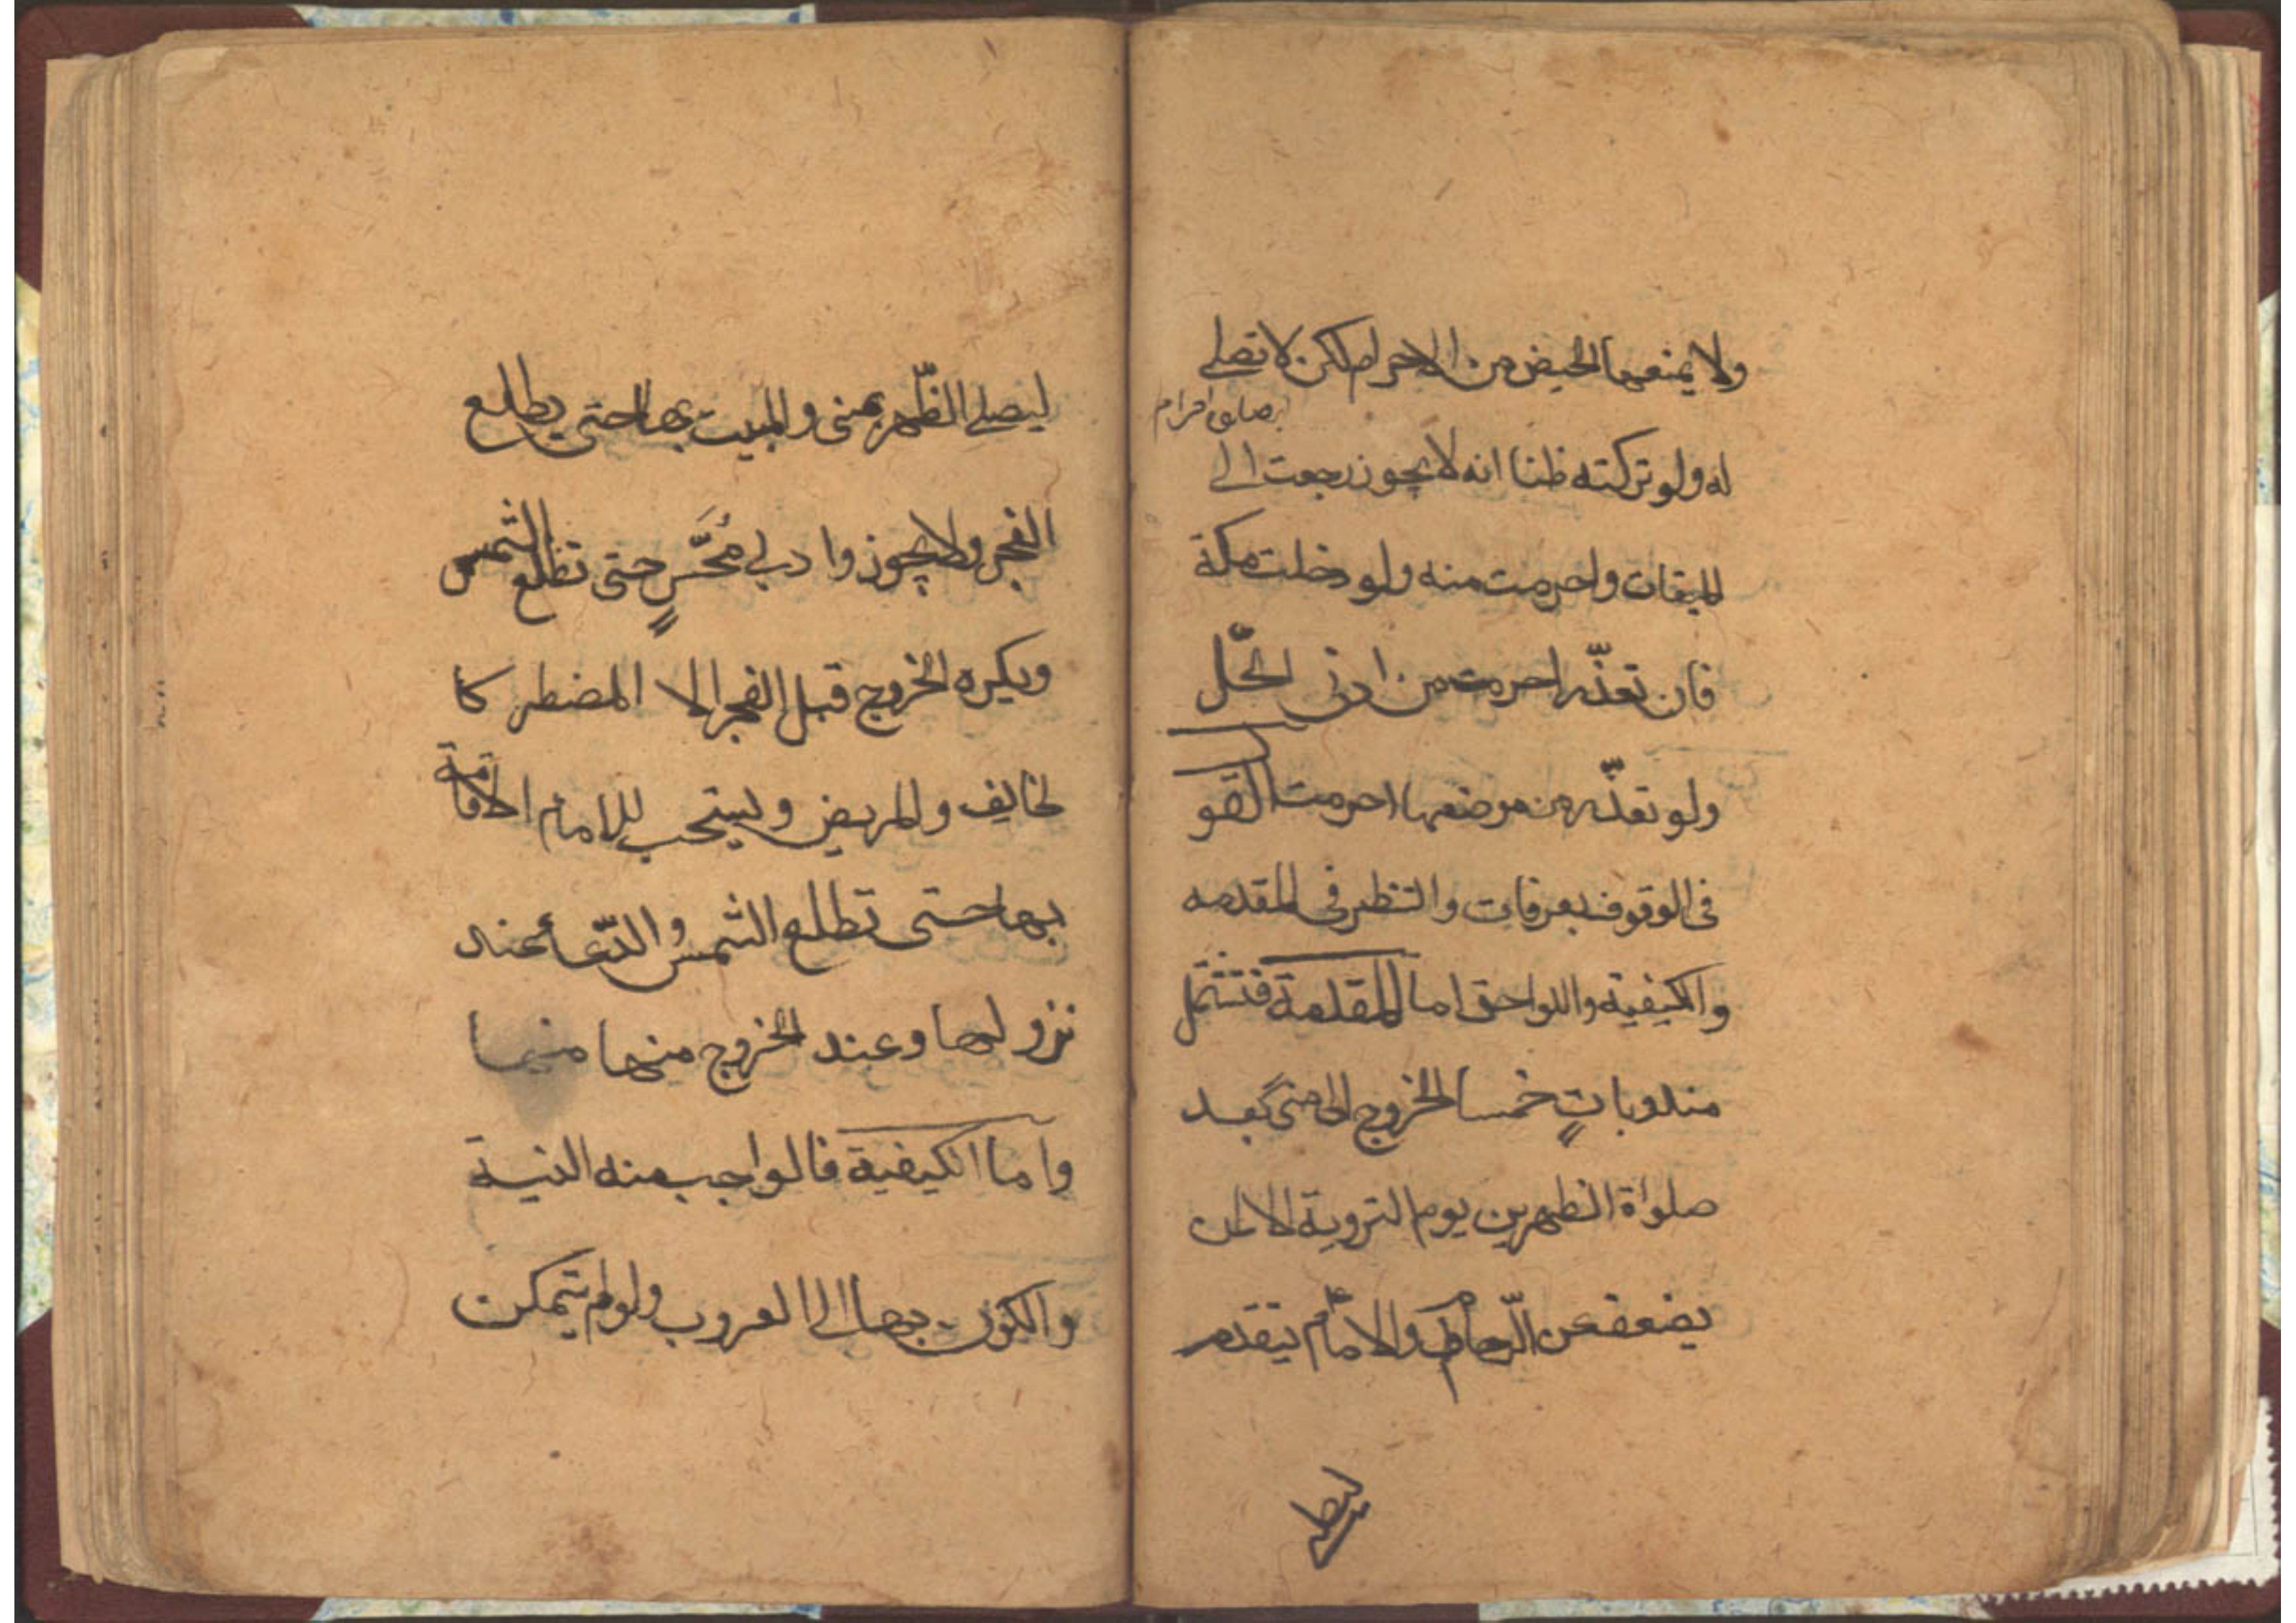 ولا يمنعها الحيض من الاحرام لكن لا تصلي
له ولو تركته ظنا انه لا يجوز رجعت الى
الميقات واحرمت منه ولو دخلت مكة
فان تعذّر احرمت من ادنى الحّل
ولو تعذّر من موضعها احرمت القو
فى الوقوف بعرفات والنظر فى المقدمه
والكيفية واللواحق اما المقدمة فتشتمل
مندوباتٍ خمسا الخروج الى منى بعد
صلواة الظهرين يوم التروية الا لمن
يضعف عن الزّحام والامام يتقدم
ليصلى
ليصلى الظّهر بمنى والمبيت بها حتى يطلع
الفجر ولا يجوز وادى مُحَسّرٍ حتى تطلع الشمس
ويكره الخروج قبل الفجر الا المضطر كا
لخايف والمريض ويستحب للامام الاقامة
بها حتى تطلع الشمس والدّعأ عند
نزولها وعند الخروج منها منها
واما الكيفية فالواجب منه النية
والكون بها الى الغروب ولو لم يتمكن